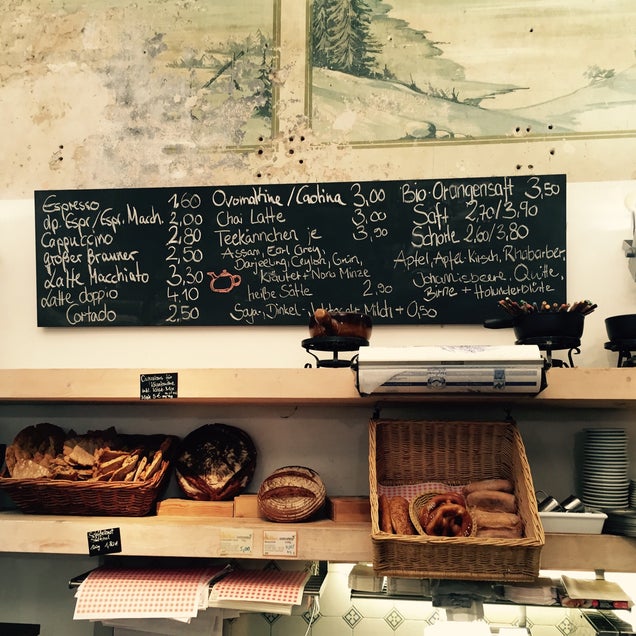 Espresso 1,60
dp. Espr./Espr. Macch. 2,00
Cappuccino 2,80
großer Brauner 2,50
Latte Macchiato 3,30
Latte doppio 4,10
Cortado 2,50
Ovomaltine/Caotina 3,00
Chai Latte 3,00
Teekännchen je 3,90
Assam, Earl Grey,
Darjeeling, Ceylon, Grün,
Kräuter + Nana Minze
heiße Säfte 2,90
Soja-, Dinkel- Milch + 0,50
Bio-Orangensaft 3,50
Saft 2,70/3,90
Schorle 2,60/3,80
Apfel, Apfel-Kirsch, Rhabarber,
Johannisbeere, Quitte,
Birne + Holunderblüte